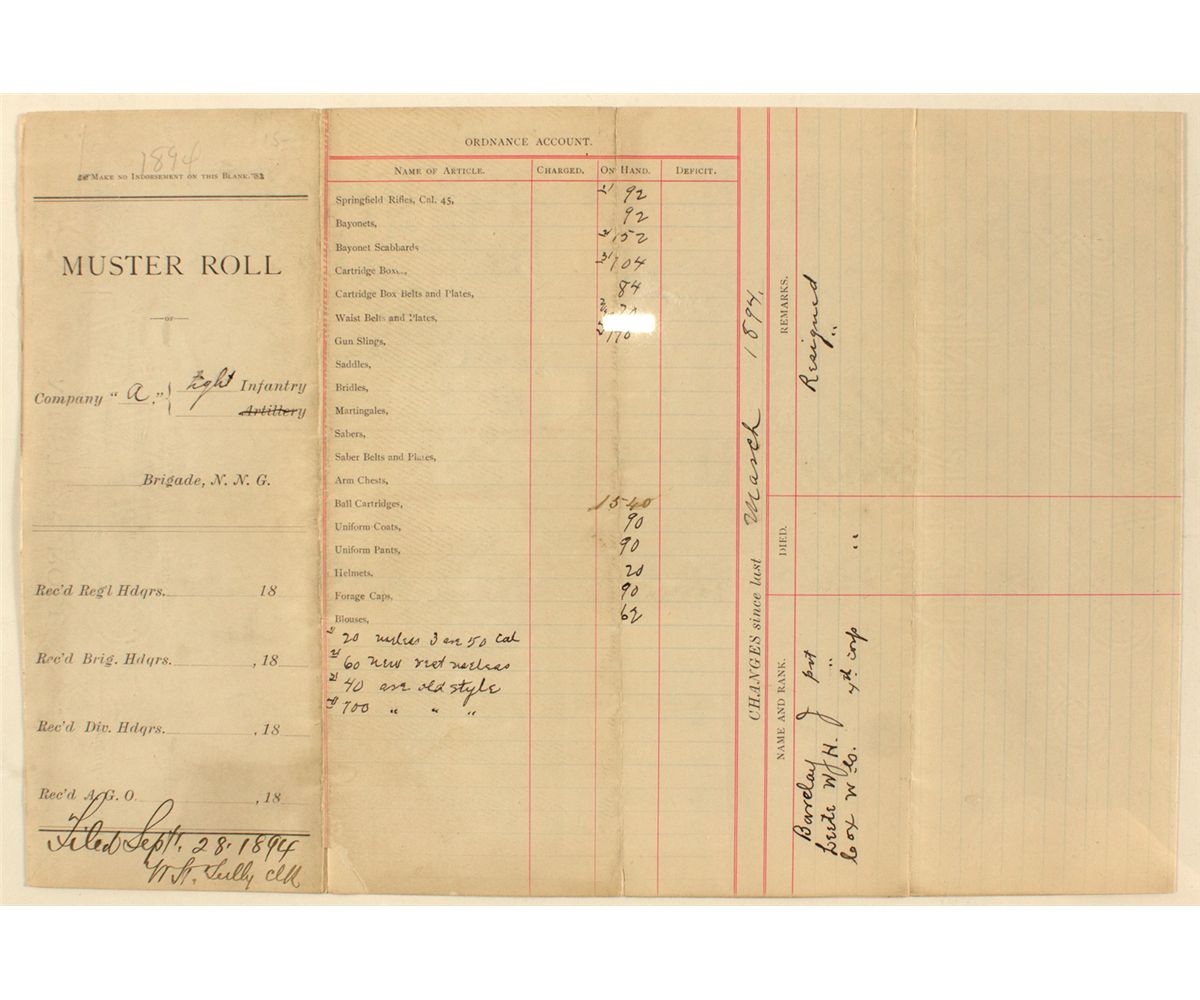 1894
MAKE NO INDORSEMENT ON THIS BLANK.
MUSTER ROLL
—OF—
Company "A." Infantry
Artillery
Brigade, N. N. G.
Rec'd Reg'l Hdqrs. 18
Rec'd Brig. Hdqrs. , 18
Rec'd Div. Hdqrs. , 18
Rec'd A. G. O. , 18
Filed Sept. 28. 1894
ORDNANCE ACCOUNT.
NAME OF ARTICLE. CHARGED. ON HAND. DEFICIT.
Springfield Rifles, Cal. 45, 92
Bayonets, 92
Bayonet Scabbards 152
Cartridge Boxes, 104
Cartridge Box Belts and Plates, 84
Waist Belts and Plates,
Gun Slings, 170
Saddles,
Bridles,
Martingales,
Sabers,
Saber Belts and Plates,
Arm Chests,
Ball Cartridges, 1540
Uniform Coats, 90
Uniform Pants, 90
Helmets, 20
Forage Caps, 90
Blouses, 62
20 3 are 50 Cal
60 new
40 are old style
700 " " "
CHANGES since last March 1894.
NAME AND RANK. DIED. REMARKS.
Barclay J pvt Resigned
W H. " "
Cox W.S. 4th corp "